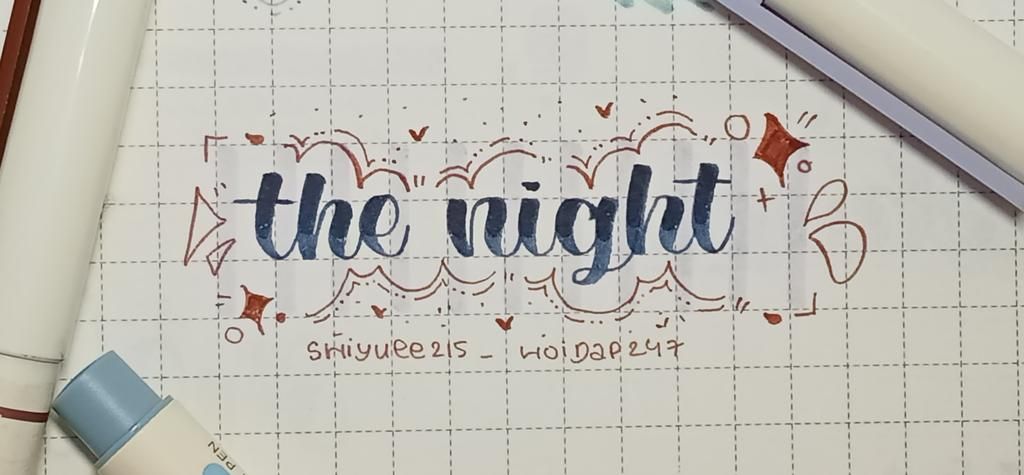 the night
shiyulee215_ hoiDap247
PEN